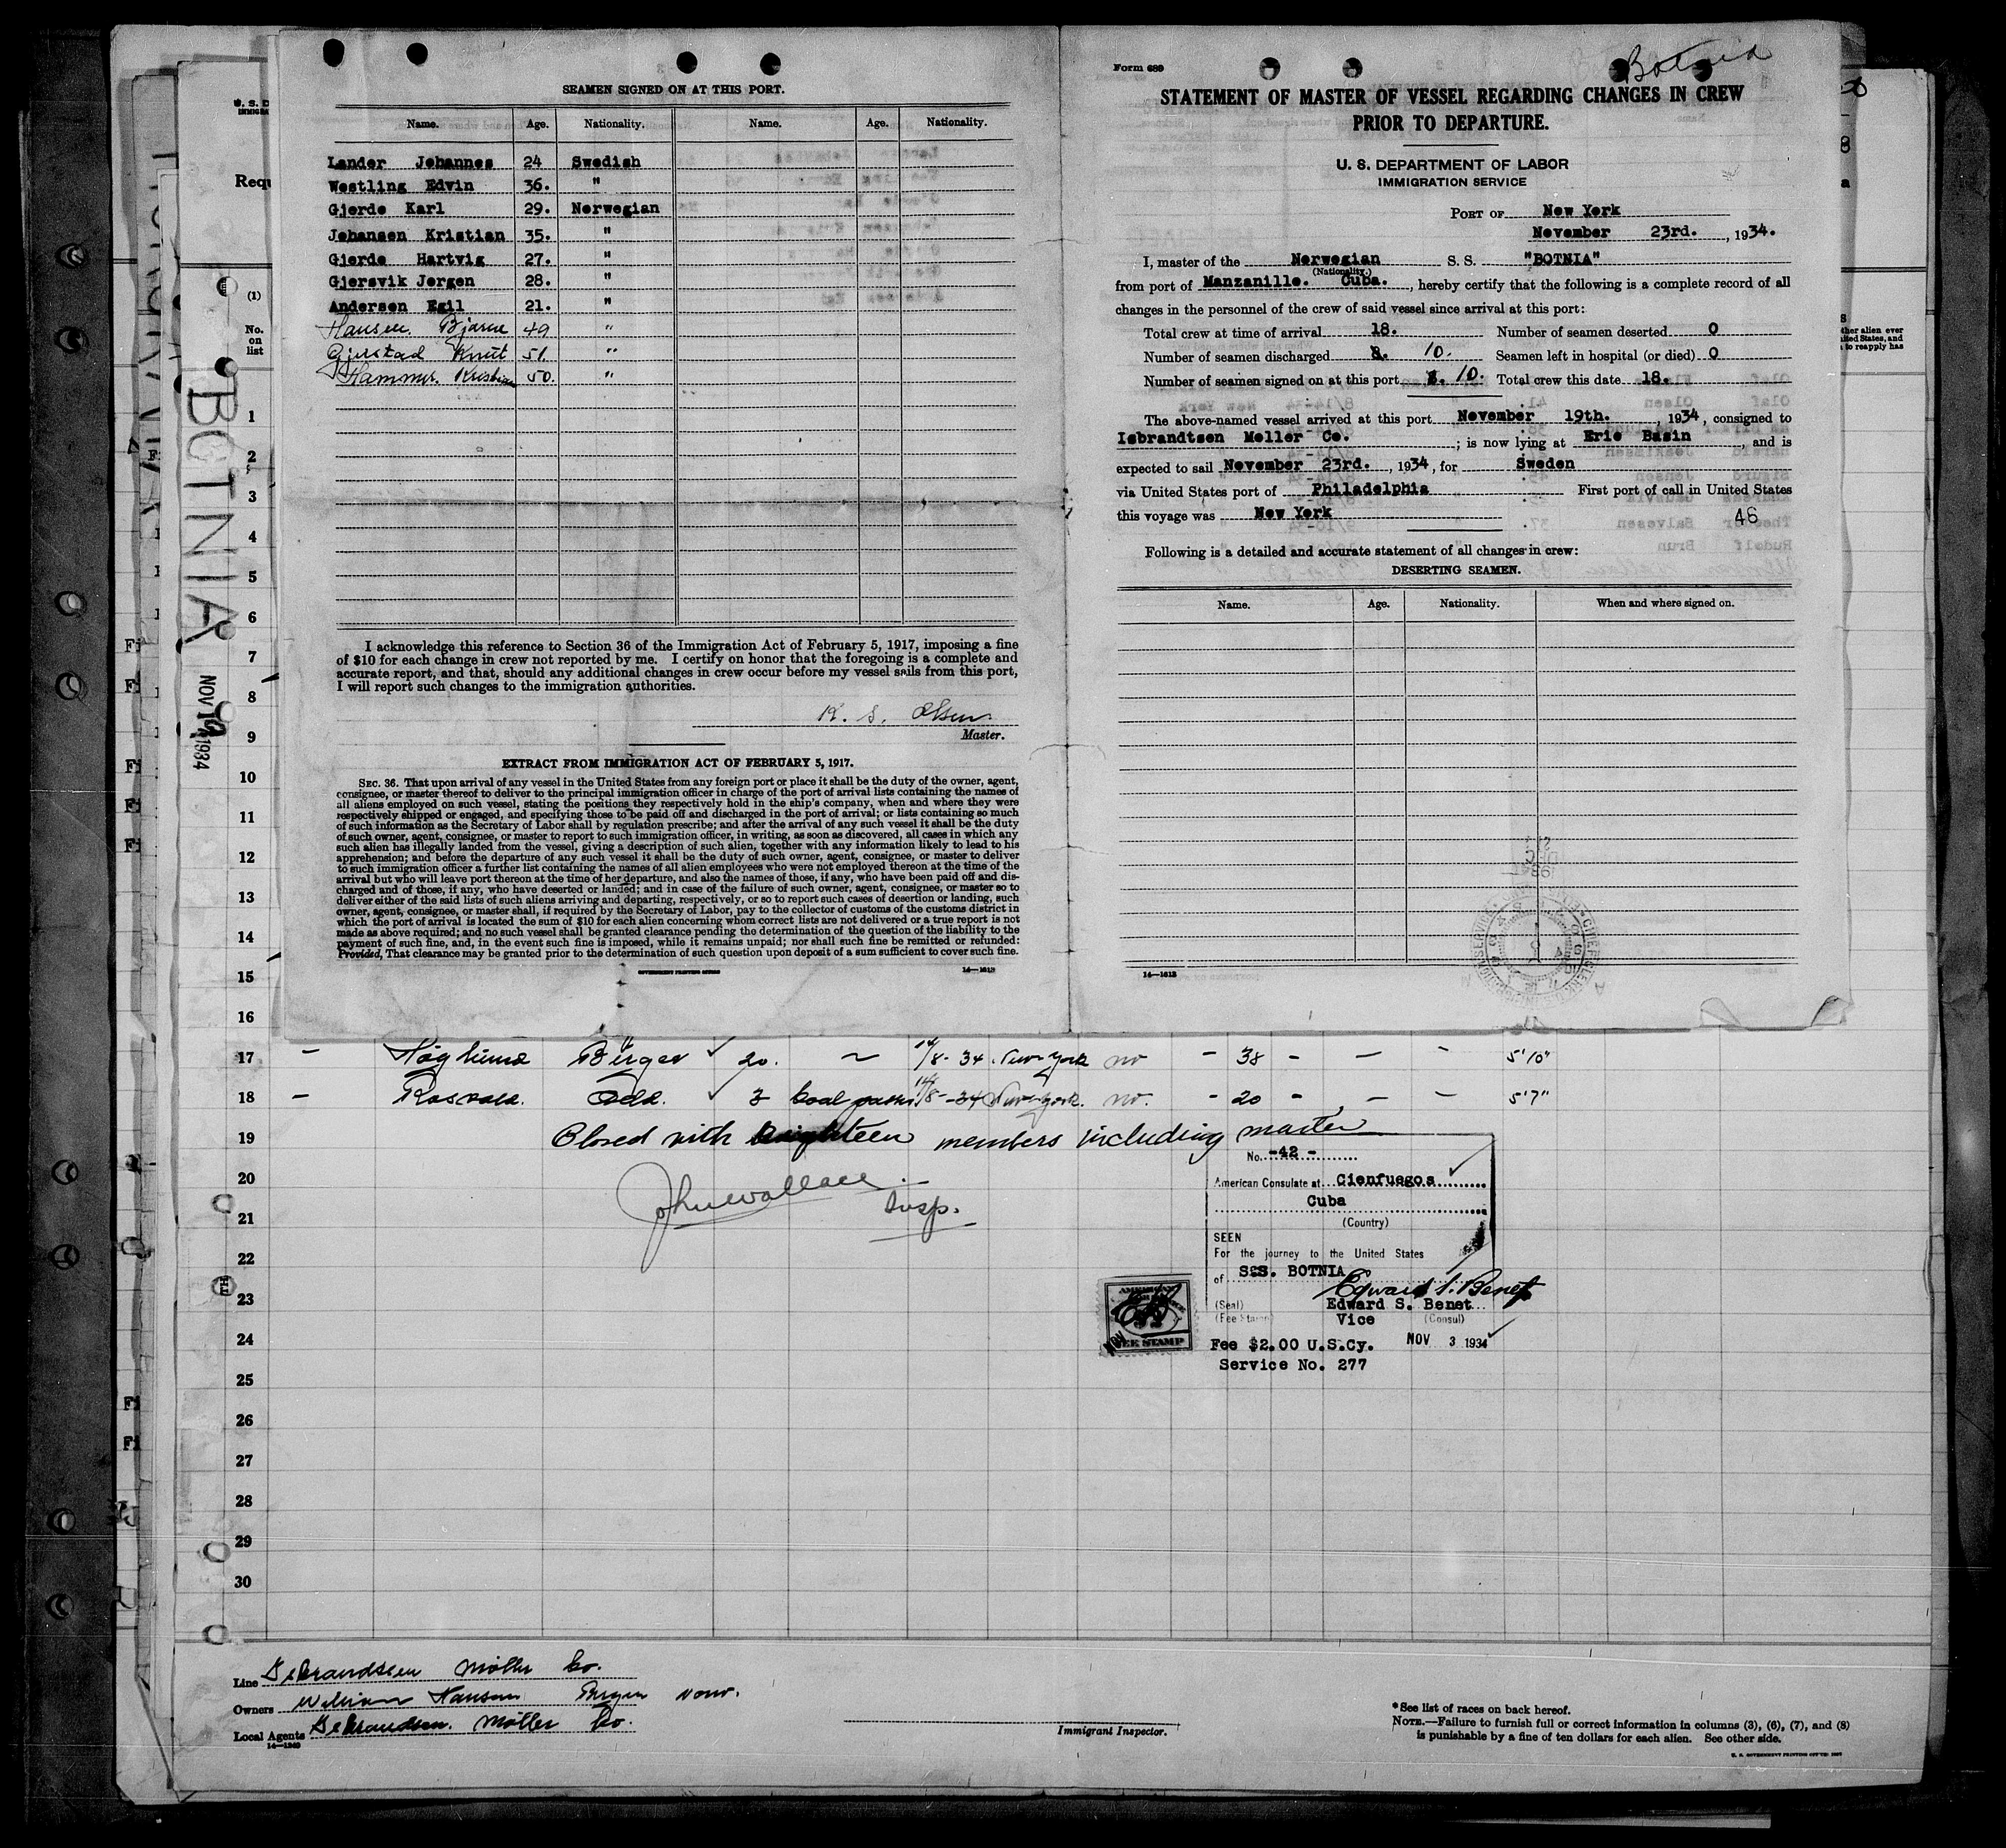 SEAMEN SIGNED ON AT THIS PORT.
Name. Age. Nationality. Name. Age. Nationality.
Lander Johannes 24 Swedish
Westling Edvin 36. "
Gjerde Karl 29. Norwegian
Johansen Kristian 35. "
Gjerde Hartvig 27. "
Gjersvik Jørgen 28. "
Andersen Egil 21. "
Hansen Bjarne 49 "
Knut 51. "
Hammer. Kristian 50. "
I acknowledge this reference to Section 36 of the Immigration Act of February 5, 1917, imposing a fine
of $10 for each change in crew not reported by me. I certify on honor that the foregoing is a complete and
accurate report, and that, should any additional changes in crew occur before my vessel sails from this port,
I will report such changes to the immigration authorities.
K. S. Olsen
Master.
EXTRACT FROM IMMIGRATION ACT OF FEBRUARY 5, 1917.
SEC. 36. That upon arrival of any vessel in the United States from any foreign port or place it shall be the duty of the owner, agent,
consignee, or master thereof to deliver to the principal immigration officer in charge of the port of arrival lists containing the names of
all aliens employed on such vessel, stating the positions they respectively hold in the ship's company, when and where they were
respectively shipped or engaged, and specifying those to be paid off and discharged in the port of arrival; or lists containing so much
of such information as the Secretary of Labor shall by regulation prescribe; and after the arrival of any such vessel it shall be the duty
of such owner, agent, consignee, or master to report to such immigration officer, in writing, as soon as discovered, all cases in which any
such alien has illegally landed from the vessel, giving a description of such alien, together with any information likely to lead to his
apprehension; and before the departure of any such vessel it shall be the duty of such owner, agent, consignee, or master to deliver
to such immigration officer a further list containing the names of all alien employees who were not employed thereon at the time of the
arrival but who will leave port thereon at the time of her departure, and also the names of those, if any, who have been paid off and dis-
charged and of those, if any, who have deserted or landed; and in case of the failure of such owner, agent, consignee, or master so to
deliver either of the said lists of such aliens arriving and departing, respectively, or so to report such cases of desertion or landing, such
owner, agent, consignee, or master shall, if required by the Secretary of Labor, pay to the collector of customs of the customs district in
which the port of arrival is located the sum of $10 for each alien concerning whom correct lists are not delivered or a true report is not
made as above required; and no such vessel shall be granted clearance pending the determination of the question of the liability to the
payment of such fine, and, in the event such fine is imposed, while it remains unpaid; nor shall such fine be remitted or refunded:
Provided, That clearance may be granted prior to the determination of such question upon deposit of a sum sufficient to cover such fine.
GOVERNMENT PRINTING OFFICE 14—1613
Form 689
Botnia
STATEMENT OF MASTER OF VESSEL REGARDING CHANGES IN CREW
PRIOR TO DEPARTURE.
U. S. DEPARTMENT OF LABOR
IMMIGRATION SERVICE
PORT OF New York
November 23rd. , 1934.
I, master of the Norwegian S. S. "BOTNIA"
(Nationality.)
from port of Manzanillo. Cuba. , hereby certify that the following is a complete record of all
changes in the personnel of the crew of said vessel since arrival at this port:
Total crew at time of arrival 18. Number of seamen deserted 0
Number of seamen discharged 8. 10. Seamen left in hospital (or died) 0
Number of seamen signed on at this port 8. 10. Total crew this date 18.
The above-named vessel arrived at this port November 19th. , 1934, consigned to
Isbrandtsen Moller Co. ; is now lying at Erie Basin , and is
expected to sail November 23rd. , 1934, for Sweden
via United States port of Philadelphia First port of call in United States
this voyage was New York 46
Following is a detailed and accurate statement of all changes in crew:
DESERTING SEAMEN.
Name. Age. Nationality. When and where signed on.
14—1613
Requ
(1)
No.
on
list
BOTNIA
NOV 19 1934
1
2
3
4
5
6
7
8
9
10
11
12
13
14
15
16
17 - Höglund Birger 20. 14/8-34 New York no - 38 - - - 5'10"
18 - Rosvold. Odd. 3 Coal passer 14/8-34 New York. no. - 20 - - - 5'7"
19 Closed with eighteen members including master
20
21
22
23
24
25
26
27
28
29
30
John Wallace
Insp.
No. -42-
American Consulate at Cienfuegos
Cuba
(Country)
SEEN
For the journey to the United States
of S.S. BOTNIA
Edward S. Benet
(Seal) Edward S. Benet
(Fee Stamp) Vice (Consul)
Fee $2.00 U.S.Cy. NOV 3 1934
Service No. 277
FEE STAMP
Line Isbrandtsen Møller Co.
Owners William Hansen Bergen Norw.
Local Agents Isbrandtsen. Møller Co.
14—1240
Immigrant Inspector.
*See list of races on back hereof.
NOTE.—Failure to furnish full or correct information in columns (3), (6), (7), and (8)
is punishable by a fine of ten dollars for each alien. See other side.